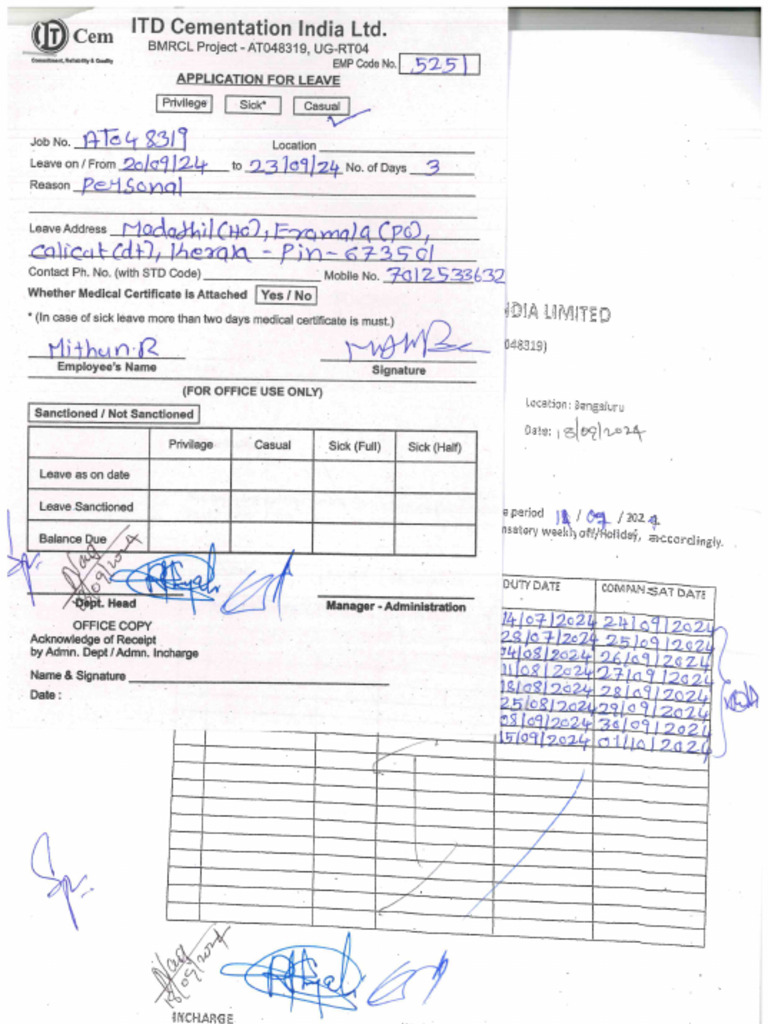 ITD Cem
Commitment, Reliability & Quality
ITD Cementation India Ltd.
BMRCL Project - AT048319, UG-RT04
EMP Code No. 5251
APPLICATION FOR LEAVE
Privilege Sick* Casual
Job No. AT048319 Location
Leave on / From 20/09/24 to 23/09/24 No. of Days 3
Reason Personal
Leave Address Madathil(Ho), Eramala(PO),
Calicut(dt), Kerala - Pin-673501
Contact Ph. No. (with STD Code) Mobile No. 7012533632
Whether Medical Certificate is Attached Yes / No
* (In case of sick leave more than two days medical certificate is must.)
Mithun.R
Employee's Name Signature
(FOR OFFICE USE ONLY)
Sanctioned / Not Sanctioned
Privilage Casual Sick (Full) Sick (Half)
Leave as on date
Leave Sanctioned
Balance Due
18/09/2024
Dept. Head Manager - Administration
OFFICE COPY
Acknowledge of Receipt
by Admn. Dept / Admn. Incharge
Name & Signature
Date :
NDIA LIMITED
048319)
Location : Bengaluru
Date: 18/09/2024
e period / 09 / 2024
nsatory weekly off/Holiday, accordingly.
DUTY DATE COMPANSAT DATE
14/07/2024 24/09/2024
28/07/2024 25/09/2024
04/08/2024 26/09/2024
11/08/2024 27/09/2024
18/08/2024 28/09/2024
25/08/2024 29/09/2024
08/09/2024 30/09/2024
15/09/2024 01/10/2024
18/09/2024
INCHARGE